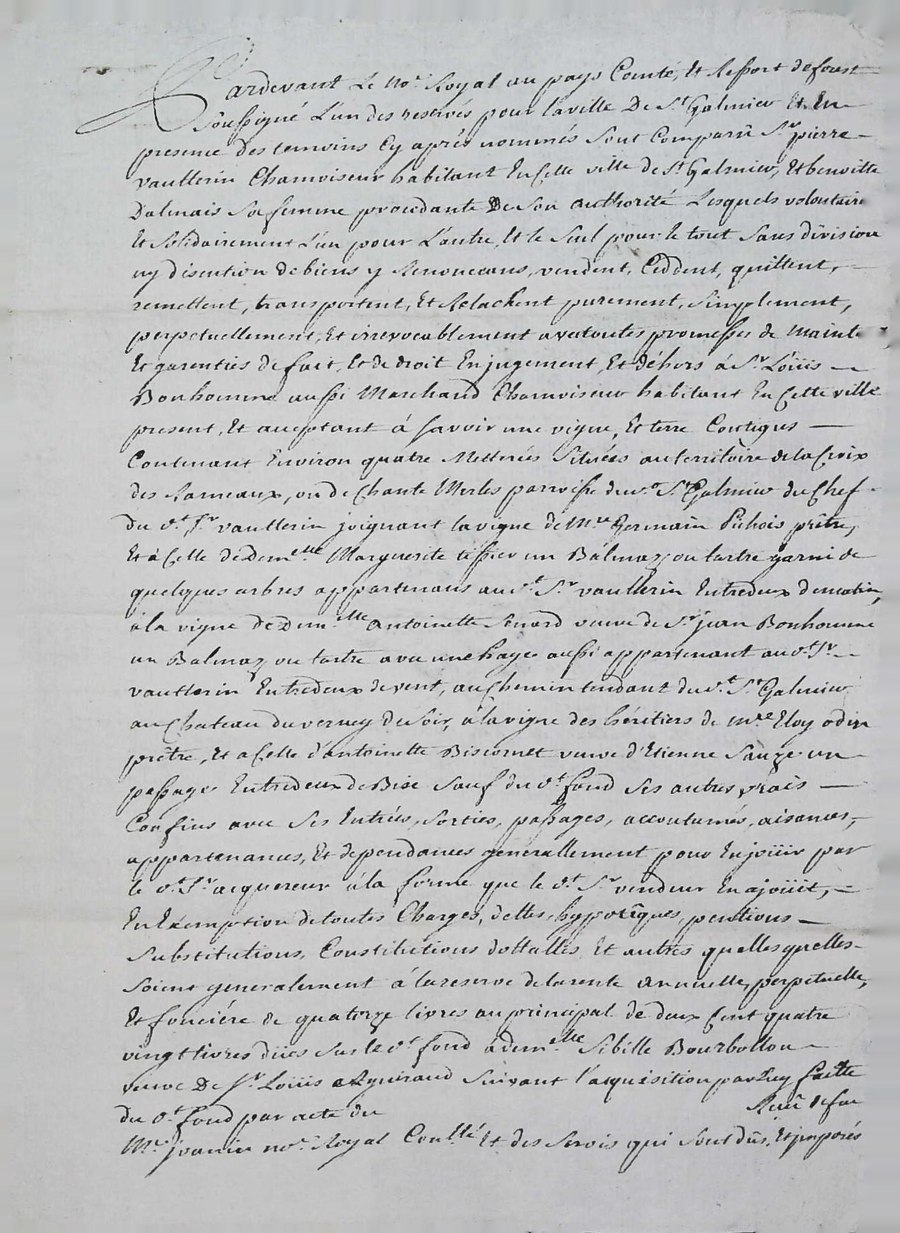 Pardevant Le no.re Royal au pays Comté, Et Ressort de forest
Soussigné L'un des reservés pour la ville De St Galmier Et En
presence des temoins Cy après nommés Sont Comparû Sr pierre
vautterin Chamoiseur habitant En Cette ville de St Galmier, Et benoitte
Dalmais Sa femme procedante De Son authorité Lesquels volontaire
Et Solidairement L'un pour L'autre, Et le Seul pour le tout Sans division
ny discution de biens y Renonceans, vendent, Ceddent, quittent,
remettent, transportent, Et Relachent purement, Simplement,
perpetuellement, Et irrevocablement avec toutes promesses de maint.e
Et garenties de fait, Et de droit En jugement, Et déhors à Sr Loüis
Bonhomme aussi Marchand Chamoiseur habitant En Cette ville
present, Et acceptant à Savoir une vigne, Et terre Contigus
Contenant Environ quatre Metterées Situées au territoire de la Croix
des Rameaux, ou de Chante Merles parroisse du.d St Galmier du Chef
du d.t Sr vautterin joignant la vigne de Mre Germain Puhois prêtre,
Et à Celle de Dem.elle Marguerite tissier un Balmaz, ou tartre garni de
quelques arbres appartenans au d.t Sr vautterin Entredeux de matin,
à la vigne de Dem.elle Antoinette Senard veuve de Sr jean Bonhomme
un Balmaz, ou tartre avec une haye aussi appartenant au d.t Sr
vautterin Entredeux de vent, au Chemin tendant du d.t St Galmier
au Chateau du verney du Soir, à la vigne des héritiers de Mre Eloy odin
prêtre, Et à Celle d'antoinette Biscornet veuve d'Etienne Sauze un
passage Entredeux de Bise Sauf du d.t fond Ses autres vrais
Confins avec Ses Entrées, Sorties, passages, accoutumés, aisances,
appartenances, Et dependances générallement pour En joüir par
le d.t Sr acquereur à la forme que le d.t Sr vendeur En a joüit,
En Exemption de toutes Charges, dettes, hypotéques, pentions
Substitutions, Constitutions dottalles, Et autres quelles quelles
Soient generalement à la reserve de la rente annuelle, perpetuelle,
Et fonciére de quatorze livres au principal de deux Cent quatre
vingt livres düe Sur le d.t fond à dem.elle Sibille Bourbollon
veuve De Sr Loüis Aguiraud Suivant l'acquisition par Luy faitte
du d.t fond par acte du Reçû
Me joanin no.re Royal Et des Servis qui Sont dûs, Et imposés